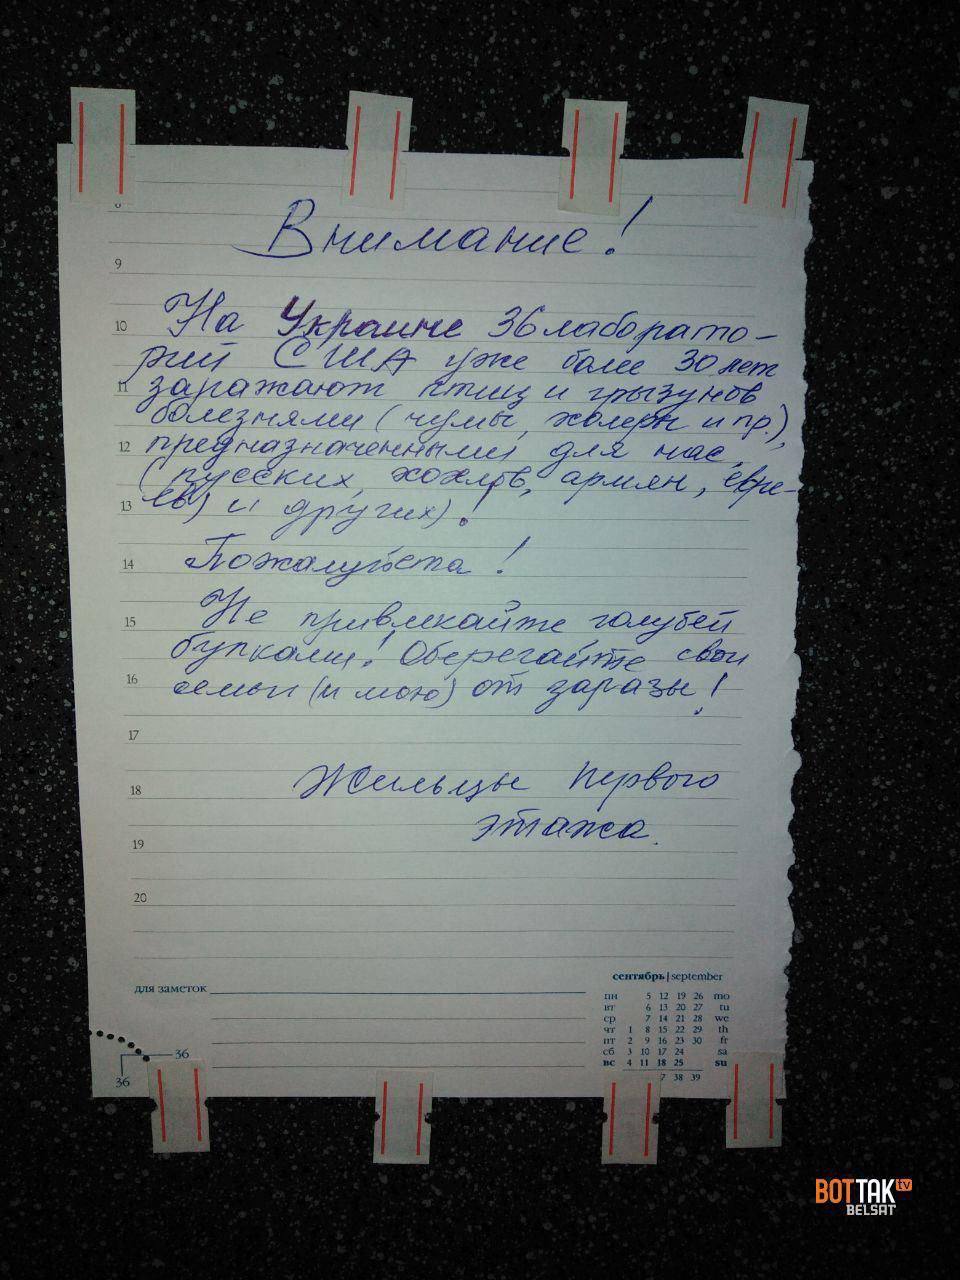 8
Внимание!
9
10 На Украине 36 лаборато-
рий США уже более 30 лет
11 заражают птиц и грызунов
болезнями (чумы, холеры и пр.),
12 предназначенными для нас,
(русских, хохлов, армян, евре-
13 ев) и других)!
14 Пожалуйста!
15 Не привлекайте голубей
булками! Оберегайте свои
16 семьи (и мою) от заразы!
17
18 Жильцы первого
этажа.
19
20
для заметок
сентябрь | september
пн 5 12 19 26 mo
вт 6 13 20 27 tu
ср 7 14 21 28 we
чт 1 8 15 22 29 th
пт 2 9 16 23 30 fr
сб 3 10 17 24 sa
вс 4 11 18 25 su
7 38 39
36
36
ВОТТАК tv
BELSAT